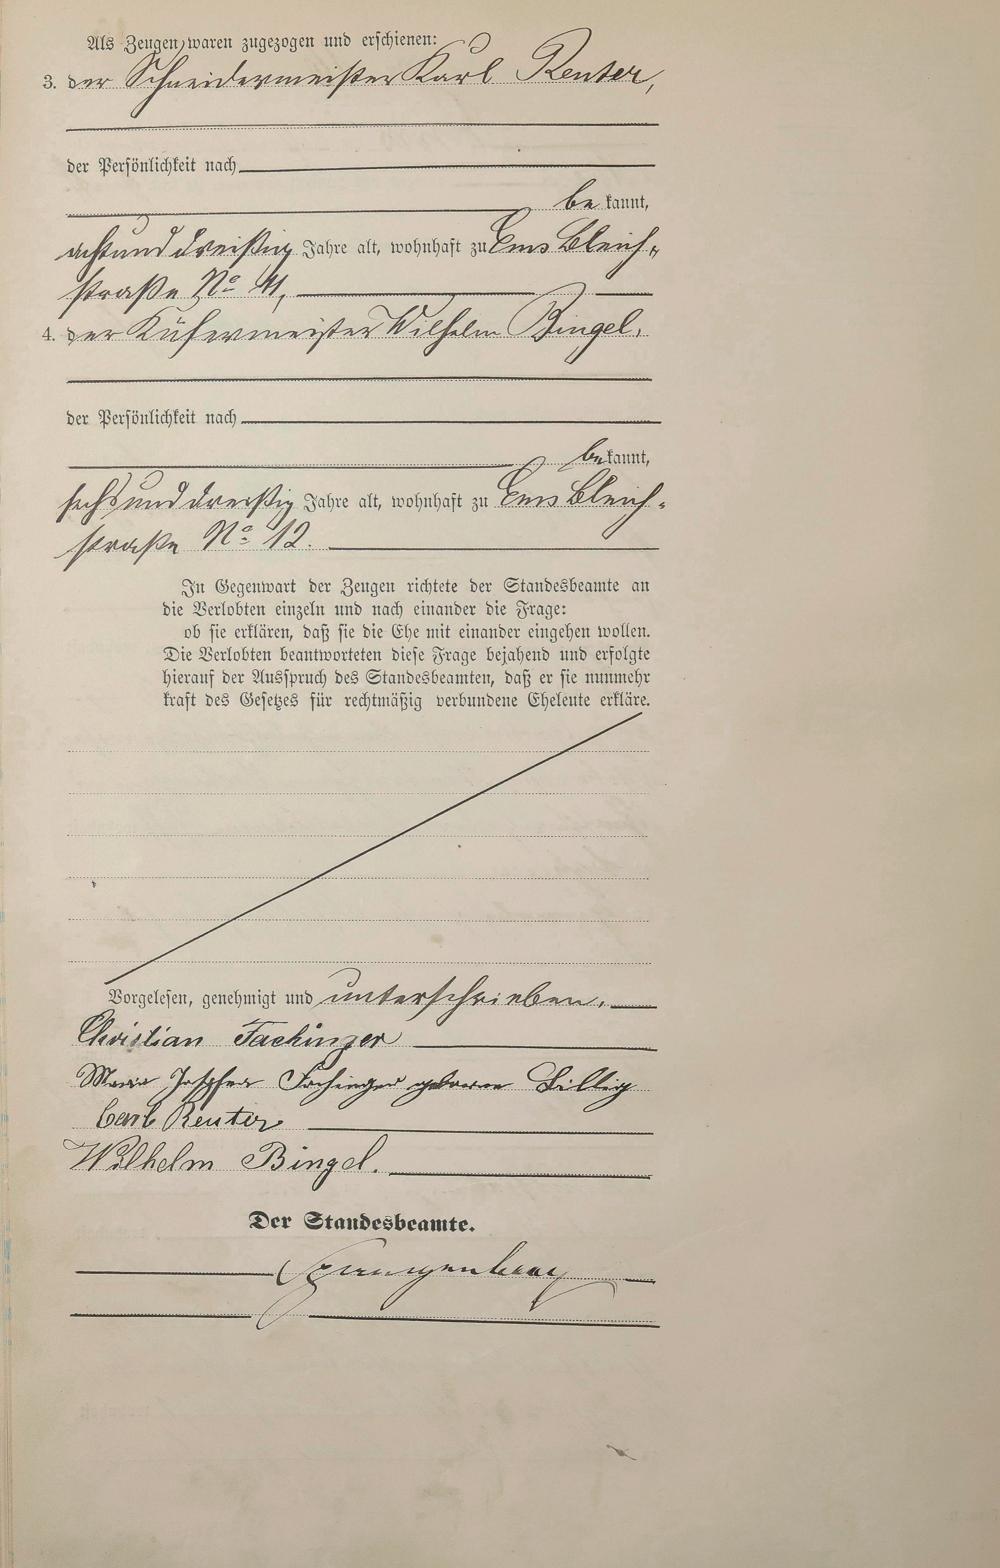 Als Zeugen waren zugezogen und erschienen:
3. der Schneidermeister Karl Reuter,
der Persönlichkeit nach
be kannt,
achtunddreißig Jahre alt, wohnhaft zu Ems Bleich-
straße No 41,
4. der Küfermeister Wilhelm Bingel,
der Persönlichkeit nach
be kannt,
sechsunddreißig Jahre alt, wohnhaft zu Ems Bleich-
straße No 12.
In Gegenwart der Zeugen richtete der Standesbeamte an
die Verlobten einzeln und nach einander die Frage:
ob sie erklären, daß sie die Ehe mit einander eingehen wollen.
Die Verlobten beantworteten diese Frage bejahend und erfolgte
hierauf der Ausspruch des Standesbeamten, daß er sie nunmehr
kraft des Gesetzes für rechtmäßig verbundene Eheleute erkläre.
Vorgelesen, genehmigt und unterschrieben.
Christian Fachinger
Maria Josefa Fachinger geborene Billig
Carl Reuter
Wilhelm Bingel.
Der Standesbeamte.
Spangenberg